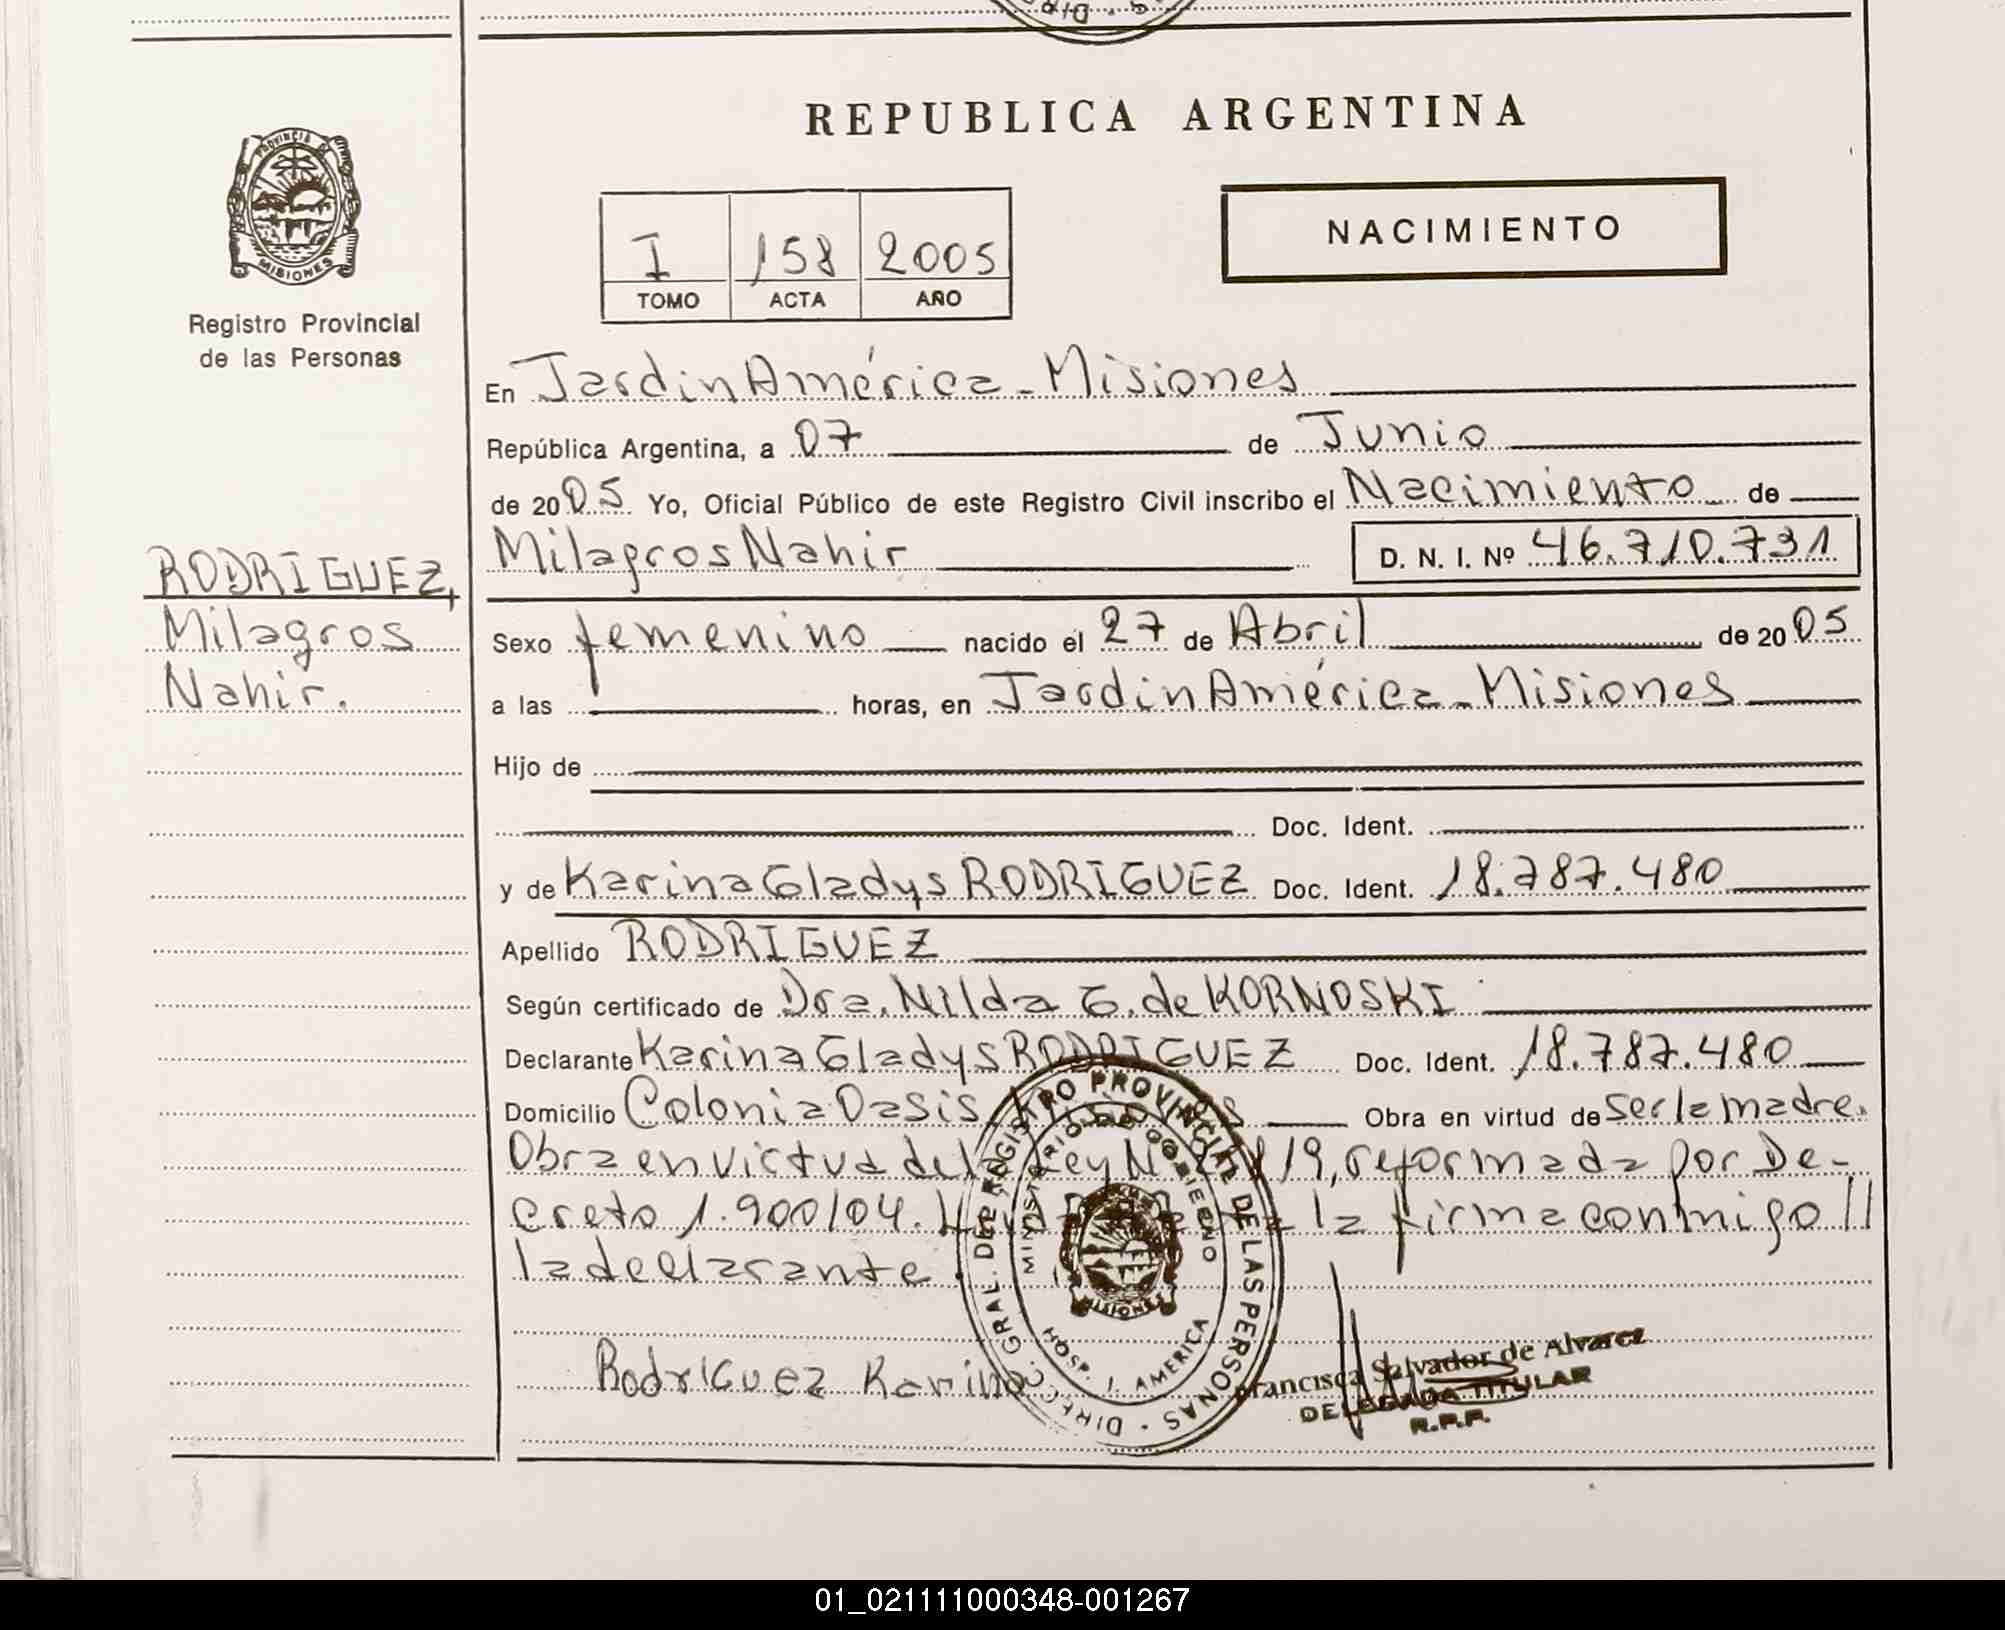 REPUBLICA ARGENTINA
PROVINCIA DE
MISIONES
Registro Provincial
de las Personas
NACIMIENTO
I 158 2005
TOMO ACTA AÑO
En Jardin América - Misiones
República Argentina, a 07 de Junio
de 2005 Yo, Oficial Público de este Registro Civil inscribo el Nacimiento de
Milagros Nahir D. N. I. Nº 46.710.731
RODRIGUEZ,
Milagros
Nahir.
Sexo femenino nacido el 27 de Abril de 2005
a las horas, en Jardin América - Misiones
Hijo de
Doc. Ident.
y de Karina Gladys RODRIGUEZ Doc. Ident. 18.787.480
Apellido RODRIGUEZ
Según certificado de Dra. Nilda G. de KORNOSKI
Declarante Karina Gladys RODRIGUEZ Doc. Ident. 18.787.480
Domicilio Colonia Oasis Obra en virtud de ser la madre.
Obra en virtud de Ley N reformada por De-
creto 1.900/04. la firma conmigo //
la declarante
Rodriguez Karina
DIRECC. GRAL. DEL REGISTRO PROVINCIAL DE LAS PERSONAS
MINISTERIO DE GOBIERNO
MISIONES
HOSP. J. AMERICA
Francisca Salvador de Alvarez
DELEGADA TITULAR
R.P.P.
01_021111000348-001267